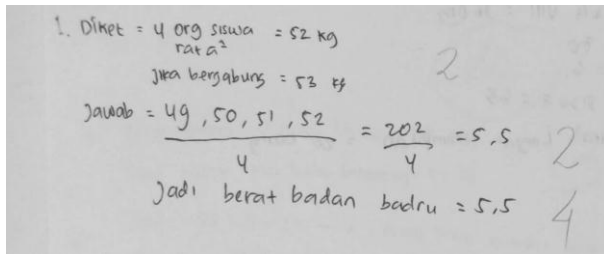 1. Diket = 4 org siswa = 52 kg
rata²
jika bergabung = 53 kg
2
Jawab = 49, 50, 51, 52 / 4 = 202 / 4 = 5,5
2
Jadi berat badan badru = 5,5
4